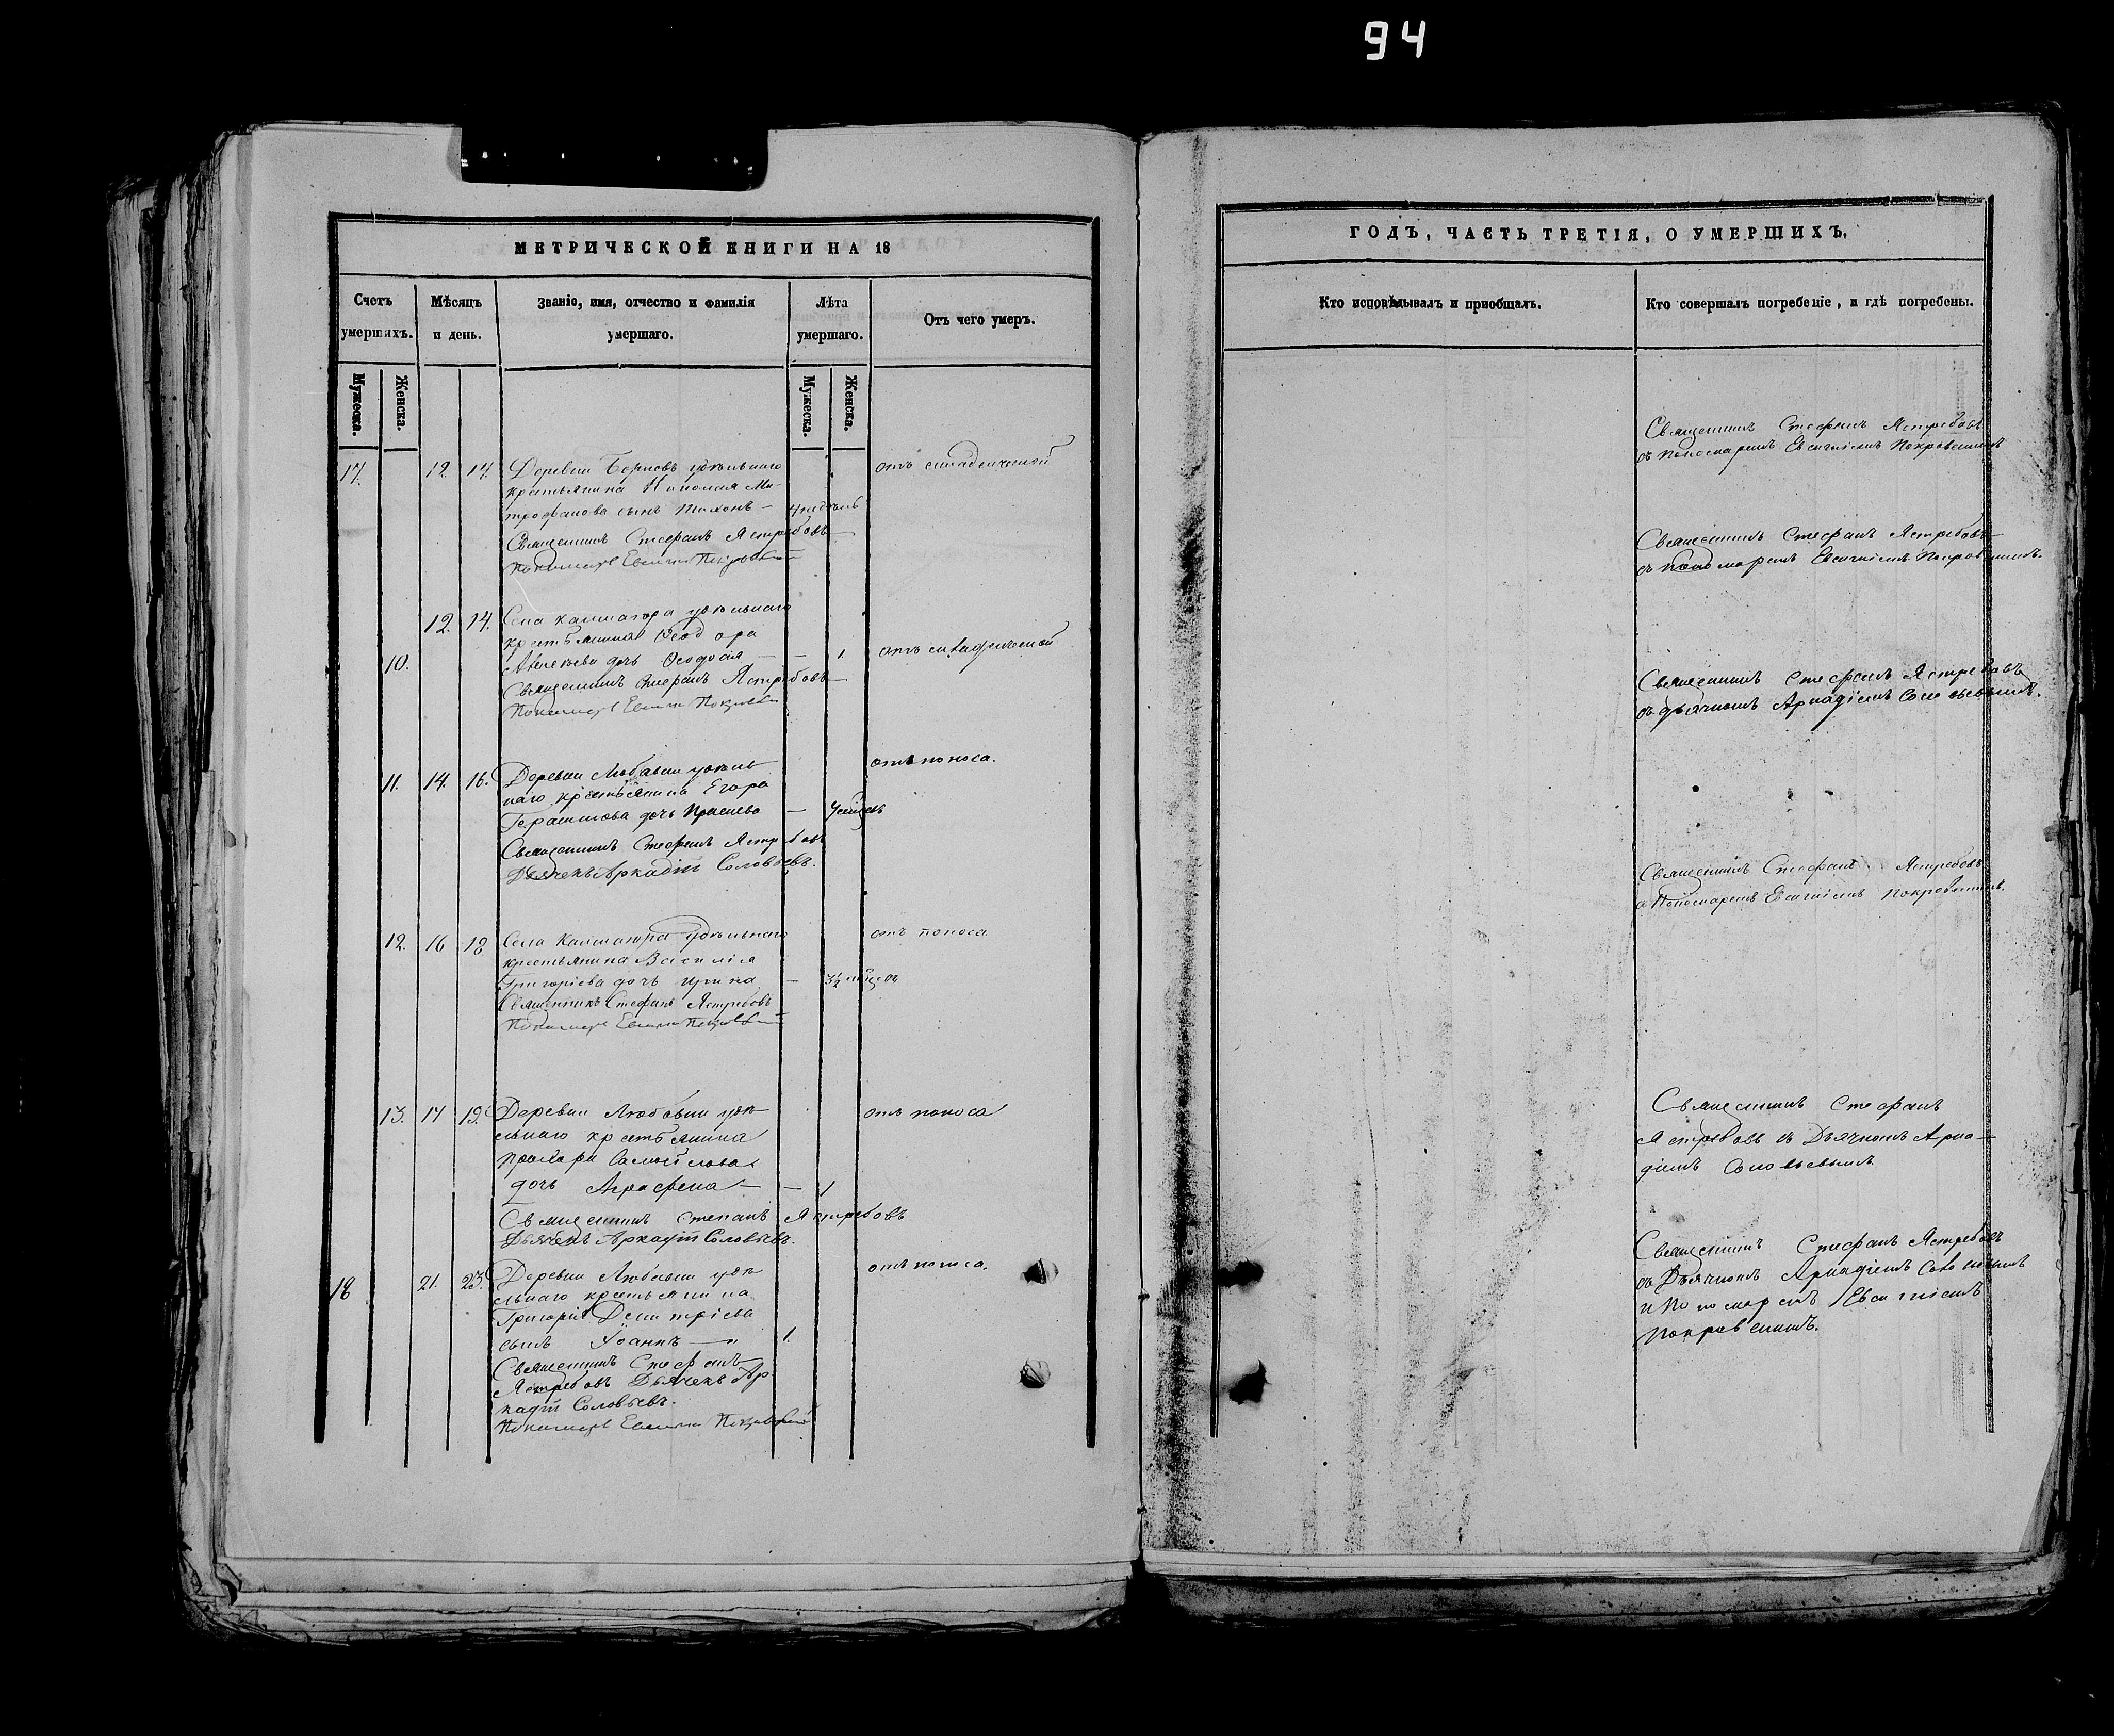 94
МЕТРИЧЕСКОЙ КНИГИ НА 18
Счетъ умершихъ.
Мѣсяцъ и день.
Званіе, имя, отчество и фамилія умершаго.
Лѣта умершаго.
Отъ чего умеръ.
Мужеска.
Женска.
Мужеска.
Женска.
17. 12 14. Деревни удѣльнаго отъ
крестьянина Николая Ми-
трофанова сынъ Тихонъ — 4 недѣль
Священникъ Стефанъ Ястребовъ
Пономарь Евгеній Покровскій
12. 14. Села удѣльнаго
крестьянина Ѳеодора
10. дочь Ѳеодосія — — 1. отъ
Священникъ Стефанъ Ястребовъ
Пономарь Евгеній Покровскій
11. 14. 16. Деревни удѣль- отъ поноса.
наго крестьянина Егора
Герасимова дочь —
Священникъ Стефанъ Ястребовъ
Дьячекъ Аркадій Соловьевъ.
12. 16 18 Села удѣльнаго отъ поноса
крестьянина Василія
Григорьева дочь Ирина — 3½
Священникъ Стефанъ Ястребовъ
Пономарь Евгеній Покровскій
13. 17 19. Деревни удѣ- отъ поноса
льнаго крестьянина
Самойлова
дочь Аграфена — — 1
Священникъ Степанъ Ястребовъ
Дьячекъ Аркадій Соловьевъ.
18 21. 23. Деревни удѣ- отъ поноса.
льнаго крестьянина
Григорія Димитріева
сынъ Іоаннъ — 1.
Священникъ Стефанъ
Ястребовъ Дьячекъ Ар-
кадій Соловьевъ.
Пономарь Евгеній Покровскій
ГОДЪ, ЧАСТЬ ТРЕТІЯ, О УМЕРШИХЪ.
Кто исповѣдывалъ и приобщалъ.
Кто совершалъ погребеніе, и гдѣ погребены.
Священникъ Стефанъ Ястребовъ
съ пономаремъ Евгеніемъ Покровскимъ
Священникъ Стефанъ Ястребовъ
съ пономаремъ Евгеніемъ Покровскимъ.
Священникъ Стефанъ Ястребовъ
съ дьячкомъ Аркадіемъ Соловьевымъ.
Священникъ Стефанъ Ястребовъ
съ Пономаремъ Евгеніемъ Покровскимъ.
Священникъ Стефанъ
Ястребовъ съ Дьячкомъ Арка-
діемъ Соловьевымъ
Священникъ Стефанъ Ястребовъ
съ Дьячкомъ Аркадіемъ Соловьевымъ
и Пономаремъ Евгеніемъ
Покровскимъ.